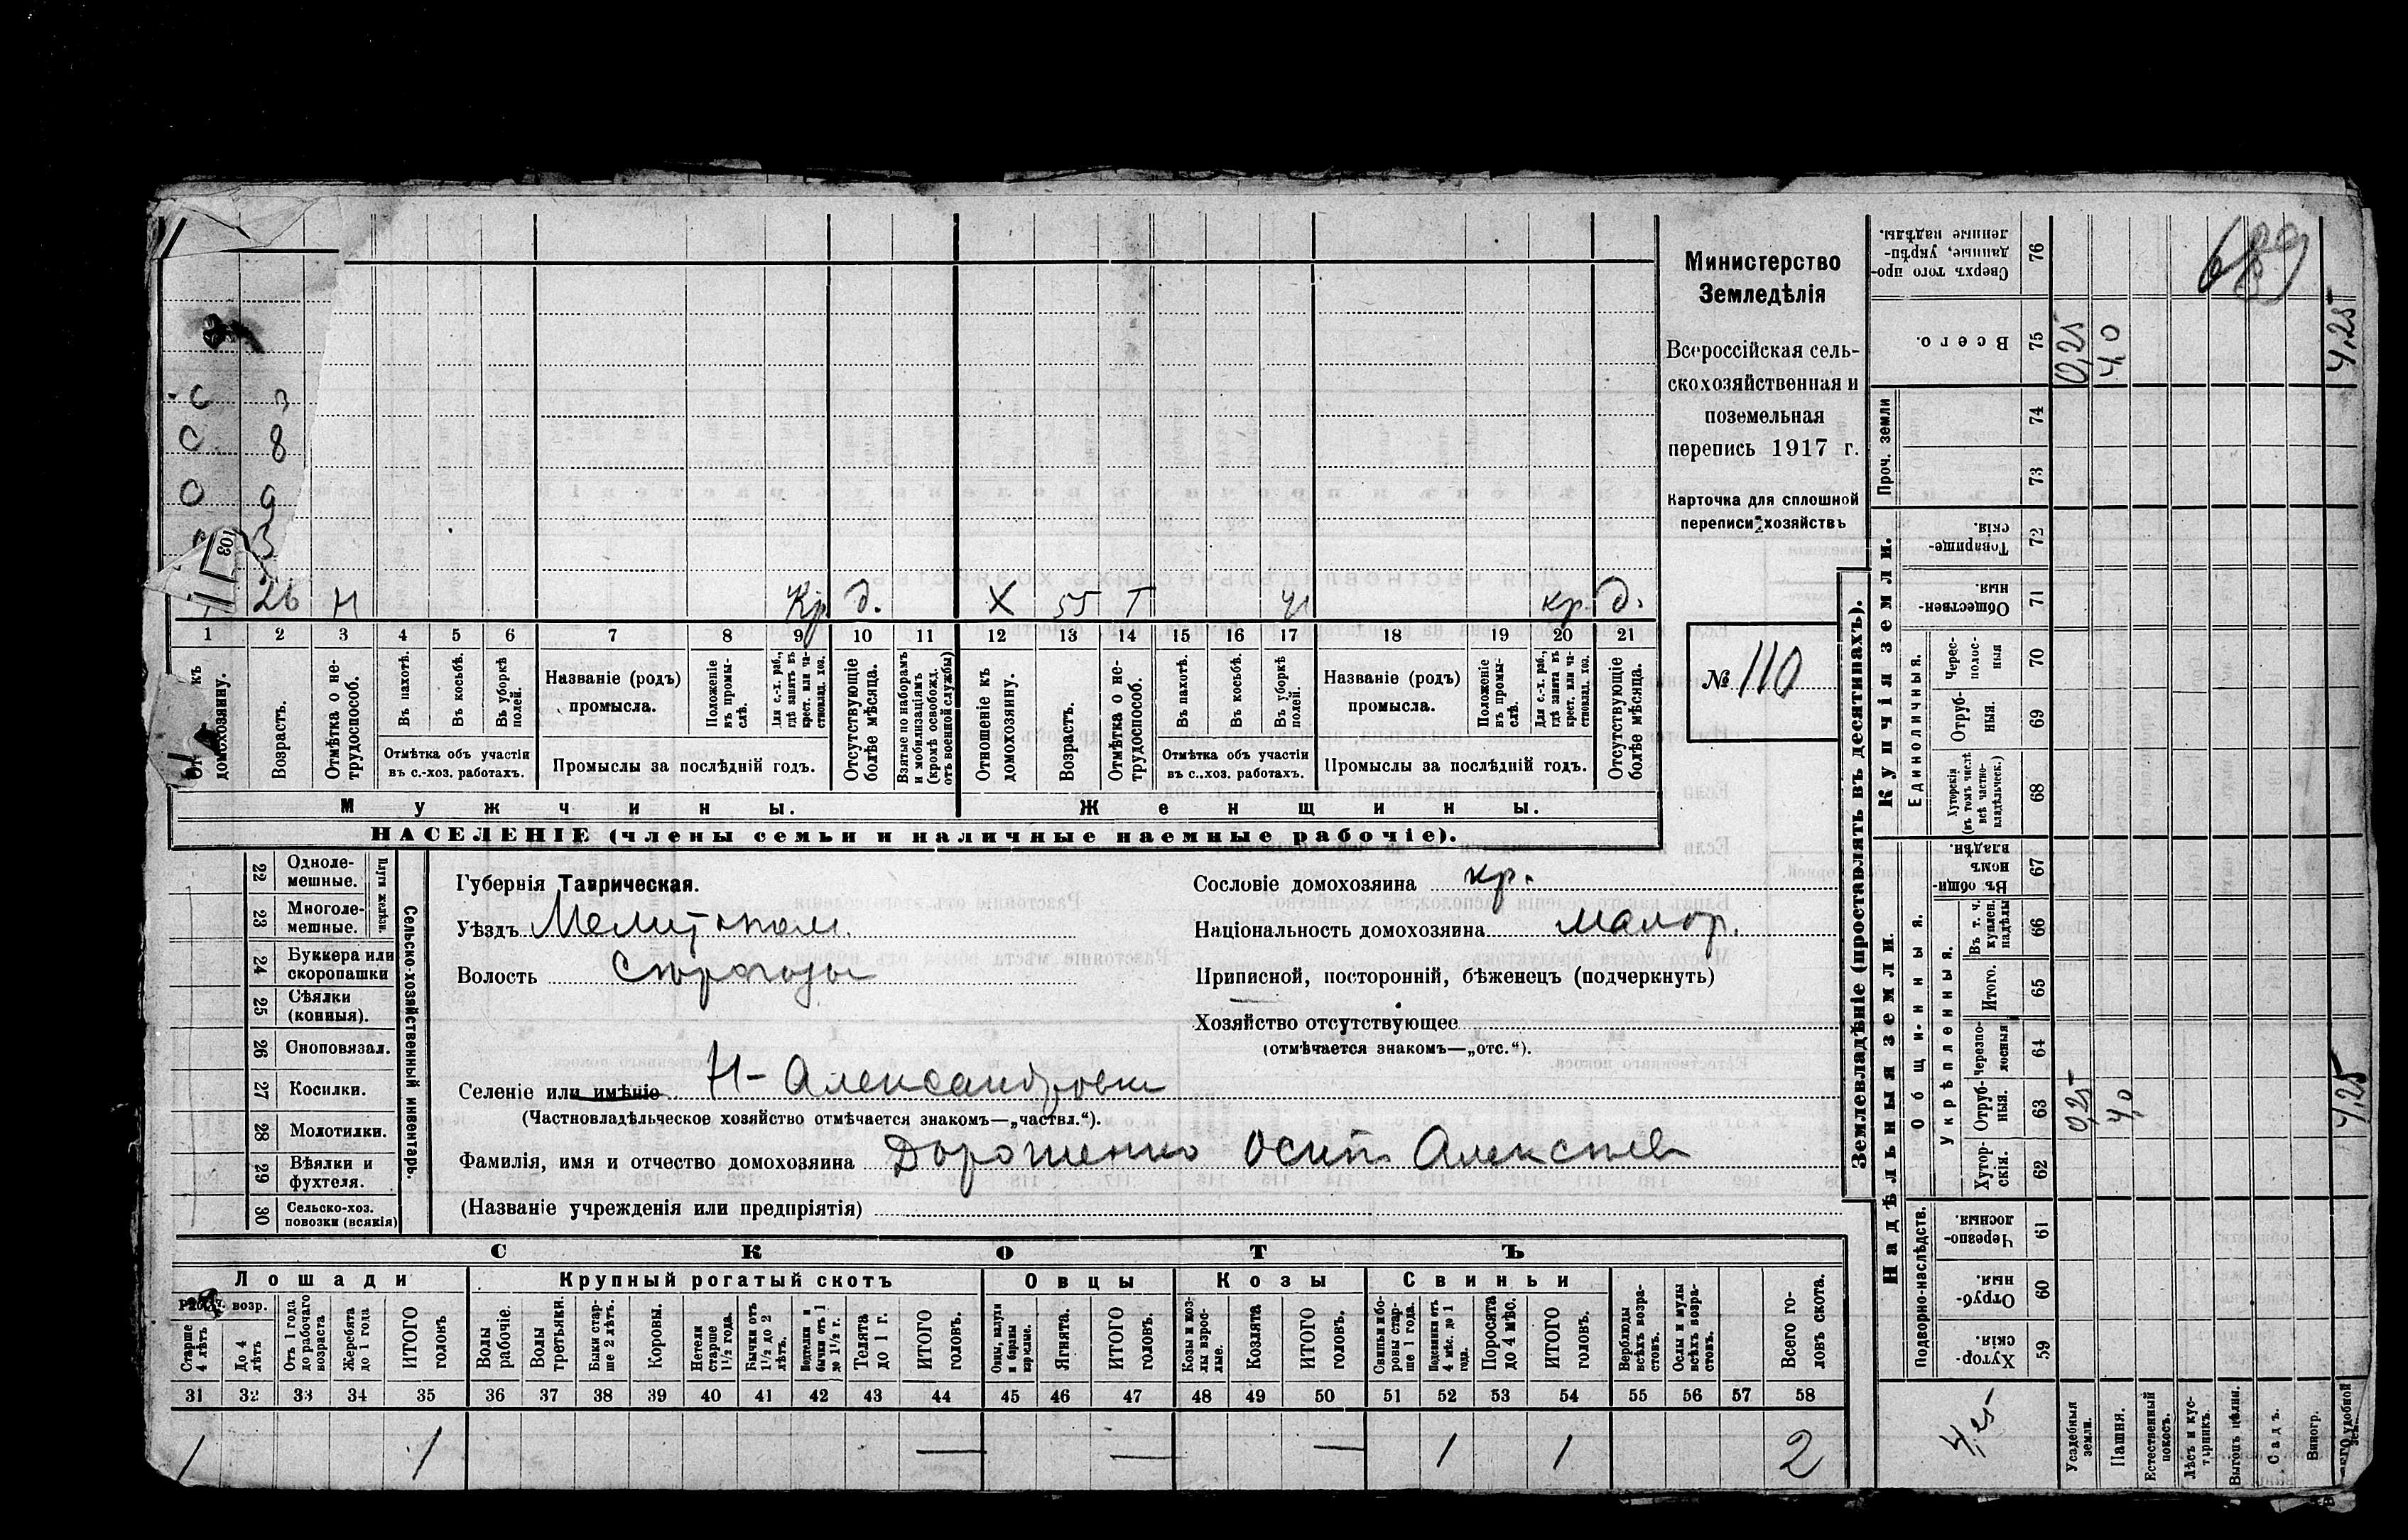 Министерство
Земледѣлія
Всероссійская сель-
скохозяйственная и
поземельная
перепись 1917 г.
Карточка для сплошной
переписи хозяйствъ
№ 110
С
С 8
О 9
3
26 Н Кр д. Х 55 Т Н кр. д.
1 2 3 4 5 6 7 8 9 10 11 12 13 14 15 16 17 18 19 20 21
къ домохозяину.
Возрастъ.
Отмѣтка о не-трудоспособ.
Въ пахотѣ.
Въ косьбѣ.
Въ уборкѣ полей.
Отмѣтка объ участіи
въ с.-хоз. работахъ.
Названіе (родъ)
промысла.
Положеніе въ промы-слѣ.
Для с.-х. раб., гдѣ занятъ въ крест. или ча-стновлад. хоз.
Промыслы за послѣдній годъ.
Отсутствующіе болѣе мѣсяца.
Взятые по наборамъ и мобилизаціямъ (кромѣ освобожд. отъ военной службы)
Отношеніе къ домохозяину.
Возрастъ.
Отмѣтка о не-трудоспособ.
Въ пахотѣ.
Въ косьбѣ.
Въ уборкѣ полей.
Отмѣтка объ участіи
въ с.-хоз. работахъ.
Названіе (родъ)
промысла.
Положеніе въ промы-слѣ.
Для с.-х. раб., гдѣ занята въ крест. или ча-стновлад. хоз.
Промыслы за послѣдній годъ.
Отсутствующіе болѣе мѣсяца.
Мужчины.
Женщины.
НАСЕЛЕНІЕ (члены семьи и наличные наемные рабочіе).
Сельско-хозяйственный инвентарь.
22 Одноле-мешные.
23 Многоле-мешные.
24 Буккера или скоропашки
25 Сѣялки (конныя).
26 Сноповязал.
27 Косилки.
28 Молотилки.
29 Вѣялки и фухтеля.
30 Сельско-хоз. повозки (всякія)
Губернія Таврическая.
Уѣздъ
Волость
Сословіе домохозяина кр.
Національность домохозяина малор.
Приписной, посторонній, бѣженецъ (подчеркнуть)
Хозяйство отсутствующее
(отмѣчается знакомъ—„отс.“).
Селеніе или имѣніе Н-Александровка
(Частновладѣльческое хозяйство отмѣчается знакомъ—„частвл.“).
Фамилія, имя и отчество домохозяина Дорошенко Осипъ Алексѣев
(Названіе учрежденія или предпріятія)
СКОТЪ
Лошади
Крупный рогатый скотъ
Овцы
Козы
Свиньи
возр.
Старше 4 лѣтъ
До 4 лѣтъ
Отъ 1 года до рабочаго возраста
Жеребята до 1 года
ИТОГО головъ
Волы рабочіе.
Волы третьяки.
Быки стар-ше 2 лѣтъ.
Коровы.
Нетели старше 1½ года.
Бычки отъ 1½ до 2 лѣтъ.
Подтелки и бычки отъ 1 до 1½ г.
Телята до 1 г.
ИТОГО головъ.
Овцы, валухи и бараны взрослые.
Ягнята.
ИТОГО головъ.
Козы и коз-лы взрос-лые.
Козлята
ИТОГО головъ.
Свиньи и бо-ровы стар-ше 1 года.
Подсвинки отъ 4 мѣс. до 1 года.
Поросята до 4 мѣс.
ИТОГО головъ.
Верблюды всѣхъ возра-стовъ.
Ослы и мулы всѣхъ возра-стовъ.
Всего го-ловъ скота.
31 32 33 34 35 36 37 38 39 40 41 42 43 44 45 46 47 48 49 50 51 52 53 54 55 56 57 58
1 1 — — — 1 1 2
Землевладѣніе (проставлять въ десятинахъ).
Надѣльныя земли.
Купчія земли.
Проч. земли
Подворно-наслѣдств.
Общинныя.
Укрѣпленныя.
Единоличныя.
Сверхъ того про-данные, укрѣп-ленные надѣлы. 76
Всего. 75 0,25 4,0 4,25
74
73
Товарище-скія. 72
Обществен-ныя 71
Черес-полос-ныя 70
Отруб-ныя. 69
Хуторскія (въ томъ числѣ всѣ частно-владѣльческ.) 68
Въ общин-номъ владѣн. 67
Въ т. ч. куплен. надѣлы 66
Итого. 65
Черезпо-лосныя 64
Отруб-ныя. 63 0,25 4,0 4,25
Хутор-скія. 62
Черезпо-лосныя. 61
Отруб-ныя. 60
Хутор-скія. 59
4,25
Усадебныя земли.
Пашня.
Естественный покосъ.
Лѣсъ и кус-тарникъ.
Выгонъ цѣлин.
Садъ.
Виногр.
удобной